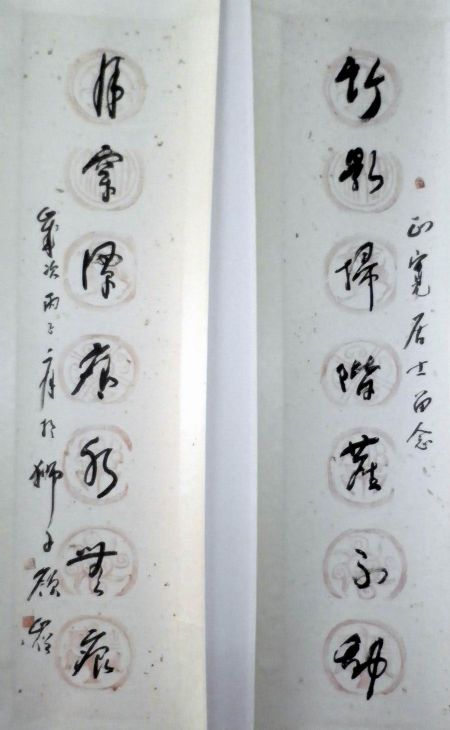 正寬居士留念
竹影掃階塵不動
月穿潭底水無痕
歲次丙子於獅子